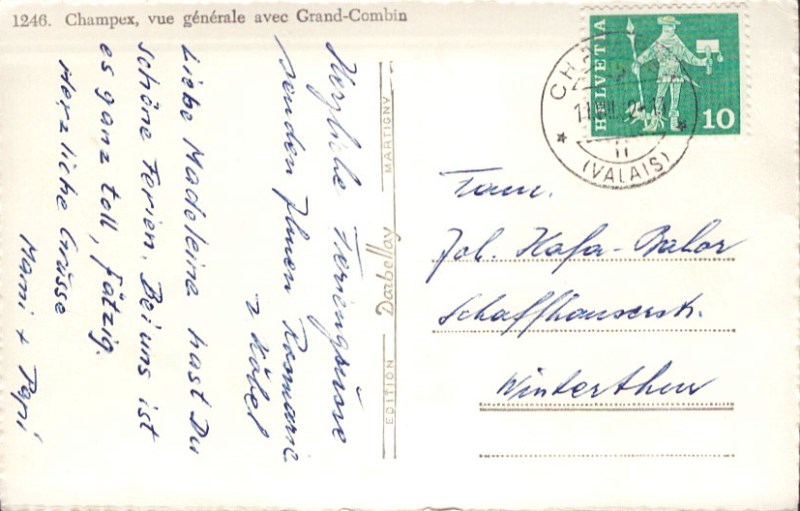 1246. Champex, vue générale avec Grand-Combin
Herzliche Feriengrüsse
senden Ihnen Rosmarie
Liebe Madeleine hast Du
schöne Ferien. Bei uns ist
es ganz toll, fätzig.
Herzliche Grüsse
Mami + Papi
EDITION Darbellay MARTIGNY
HELVETIA
10
(VALAIS)
Fam.
Joh.
Schaffhauserstr.
Winterthur